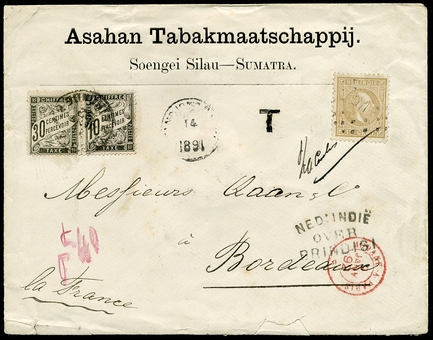 Asahan Tabakmaatschappij.
Soengei Silau—SUMATRA.
CHIFFRE
30 CENTIMES
À PERCEVOIR
TAXE
CHIFFRE
10 CENTIMES
À PERCEVOIR
TAXE
14
1891
T
Messieurs
à
Bordeaux
la France
NED: INDIË
OVER
BRINDISI
40